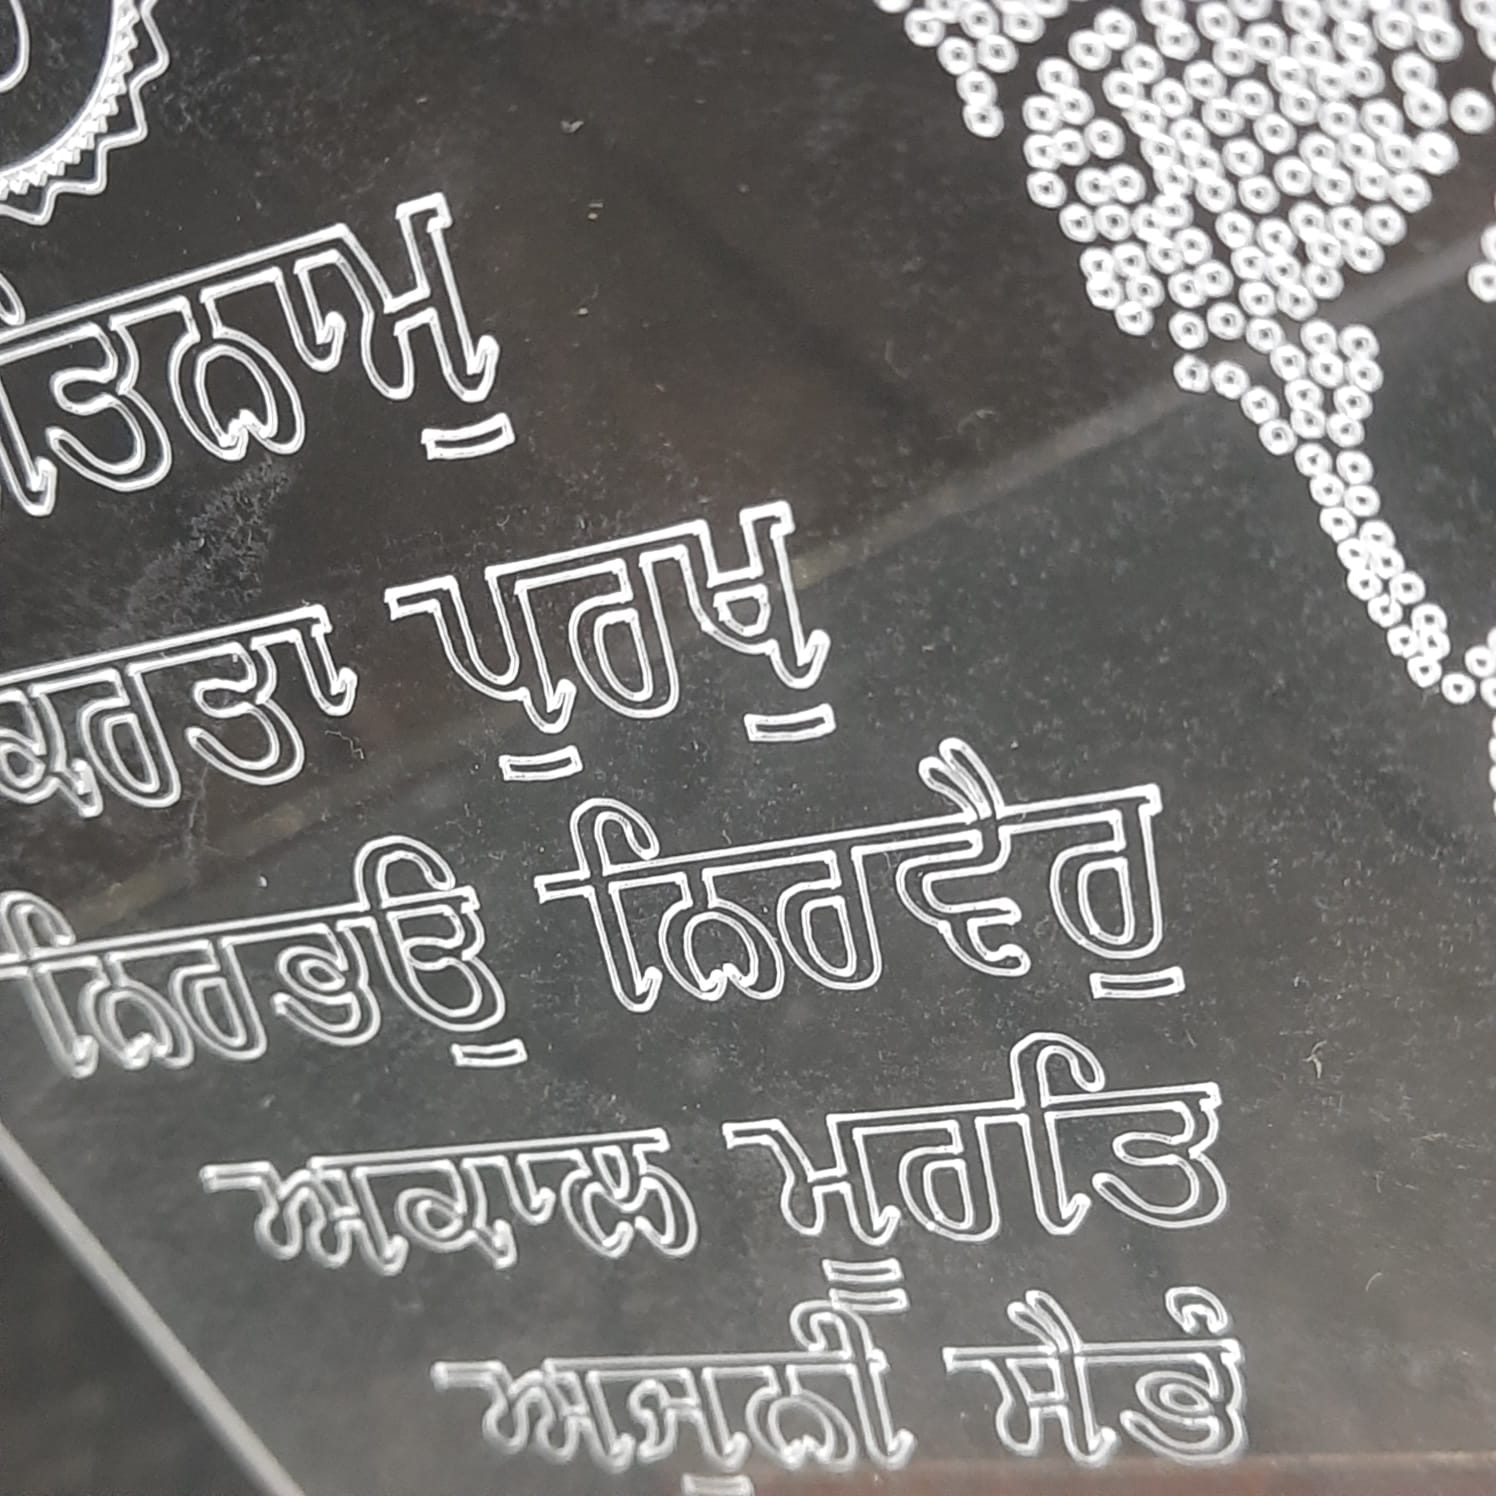 ਤਿਨਾਮੁ
ਕਰਤਾ ਪੁਰਖੁ
ਨਿਰਭਉ ਨਿਰਵੈਰੁ
ਅਕਾਲ ਮੂਰਤਿ
ਅਜੂਨੀ ਸੈਭੰ